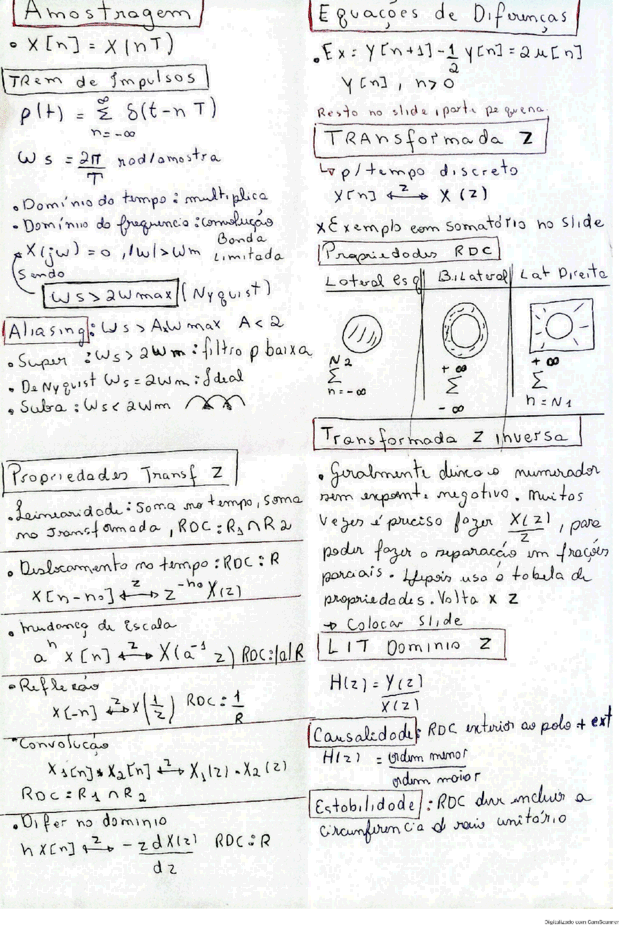 Amostragem
• X[n] = X(nT)
TRem de Impulsos
p(t) = ∞ Σ n=-∞ δ(t-nT)
ωs = 2π/T rad/amostra
• Domínio do tempo: multiplica
• Domínio do frequencia: convolução
X(jω) = 0, |ω| > ωm Banda Limitada
Sendo
ωs > 2ωmax (Nyquist)
Aliasing: ωs > Aωmax A < 2
• Super: ωs > 2ωm: filtro p baixa
• De Nyquist ωs = 2ωm: Ideal
• Suba: ωs < 2ωm
Propriedades Transf Z
• Leinearidade: Soma no tempo, soma
na Transformada, RDC: R1 ∩ R2
• Deslocamento no tempo: RDC: R
X[n-no] ↔z Z^-no X(z)
• mudança de Escala
a^n X[n] ↔z X(a^-1 z) RDC: |a|R
• Reflexão
X[-n] ↔z X(1/z) RDC: 1/R
• Convolução
X1[n] * X2[n] ↔z X1(z) • X2(z)
RDC: R1 ∩ R2
• Difer no dominio
n X[n] ↔z -z dX(z)/dz RDC: R
Equações de Diferenças
• Ex: Y[n+1] - 1/2 Y[n] = 2μ[n]
Y[n], n>0
Resto no slide, parte pequena
TRAnsformada Z
↳ p/ tempo discreto
X[n] ↔z X(z)
x Exemplo com somatório no slide
Propriedades RDC
Lateral Esq Bilateral Lat Direita
N2 Σ n=-∞ +∞ Σ -∞ +∞ Σ n=N1
Transformada Z inversa
• Geralmente deixa o numerador
sem expoente negativo. Muitas
vezes é preciso fazer X(z)/z, para
poder fazer a separacção em frações
parciais. Depois usa a tabela de
propriedades. Volta x Z
→ Colocar Slide
LIT Dominio Z
H(z) = Y(z)/X(z)
Causalidade: RDC exterior ao polo + ext
H(z) = ordem menor/ordem maior
Estabilidade: RDC deve incluir a
circunferencia d raio unitário
Digitalizado com CamScanner